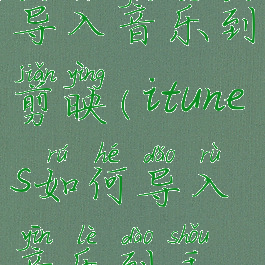 导入音乐到
jiǎn yìng
剪映(itune
rú hé dǎo rù
s如何导入
yīn lè dào shǒu
音乐到手